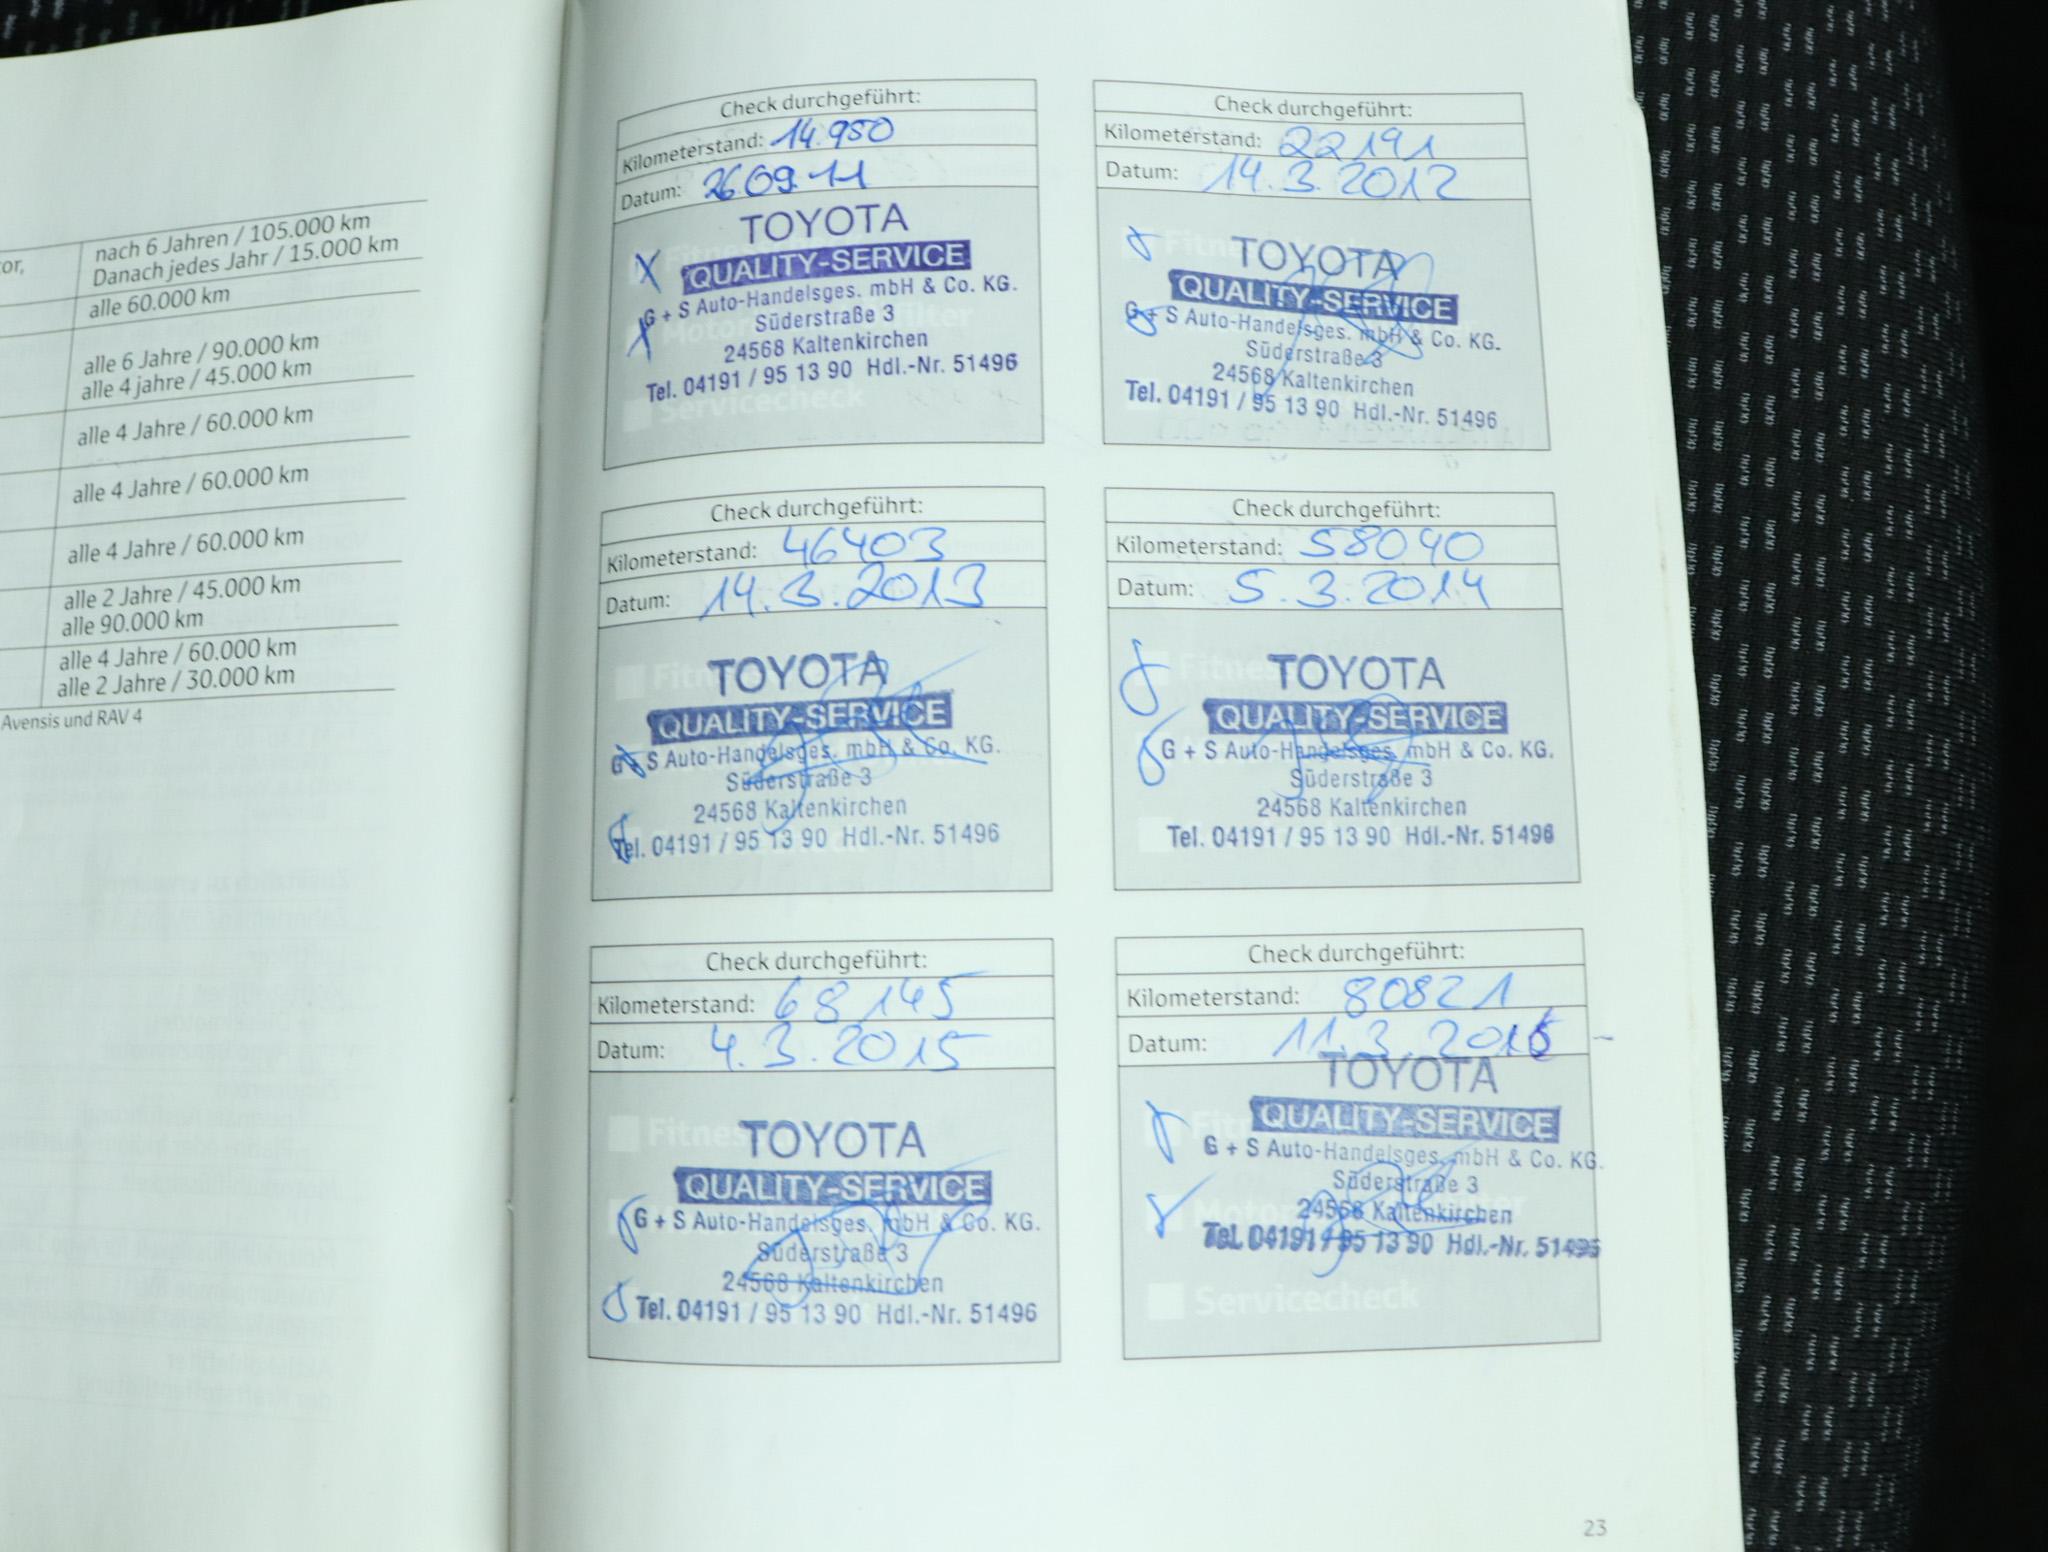 or,
nach 6 Jahren / 105.000 km
Danach jedes Jahr / 15.000 km
alle 60.000 km
alle 6 Jahre / 90.000 km
alle 4 jahre / 45.000 km
alle 4 Jahre / 60.000 km
alle 4 Jahre / 60.000 km
alle 4 Jahre / 60.000 km
alle 2 Jahre / 45.000 km
alle 90.000 km
alle 4 Jahre / 60.000 km
alle 2 Jahre / 30.000 km
Avensis und RAV 4
Check durchgeführt:
Kilometerstand: 14.950
Datum: 26.09.11
TOYOTA
QUALITY-SERVICE
G + S Auto-Handelsges. mbH & Co. KG.
Süderstraße 3
24568 Kaltenkirchen
Tel. 04191 / 95 13 90 Hdl.-Nr. 51496
Servicecheck
Check durchgeführt:
Kilometerstand: 22191
Datum: 14.3.2012
TOYOTA
QUALITY-SERVICE
G + S Auto-Handelsges. mbH & Co. KG.
Süderstraße 3
24568 Kaltenkirchen
Tel. 04191 / 95 13 90 Hdl.-Nr. 51496
Check durchgeführt:
Kilometerstand: 46403
Datum: 14.3.2013
TOYOTA
QUALITY-SERVICE
G + S Auto-Handelsges. mbH & Co. KG.
Süderstraße 3
24568 Kaltenkirchen
Tel. 04191 / 95 13 90 Hdl.-Nr. 51496
Check durchgeführt:
Kilometerstand: 58090
Datum: 5.3.2014
TOYOTA
QUALITY-SERVICE
G + S Auto-Handelsges. mbH & Co. KG.
Süderstraße 3
24568 Kaltenkirchen
Tel. 04191 / 95 13 90 Hdl.-Nr. 51496
Check durchgeführt:
Kilometerstand: 68145
Datum: 4.3.2015
TOYOTA
QUALITY-SERVICE
G + S Auto-Handelsges. mbH & Co. KG.
Süderstraße 3
24568 Kaltenkirchen
Tel. 04191 / 95 13 90 Hdl.-Nr. 51496
Check durchgeführt:
Kilometerstand: 80821
Datum: 11.3.2016
TOYOTA
QUALITY-SERVICE
G + S Auto-Handelsges. mbH & Co. KG.
Süderstraße 3
24568 Kaltenkirchen
Tel. 04191 / 95 13 90 Hdl.-Nr. 51496
Servicecheck
23